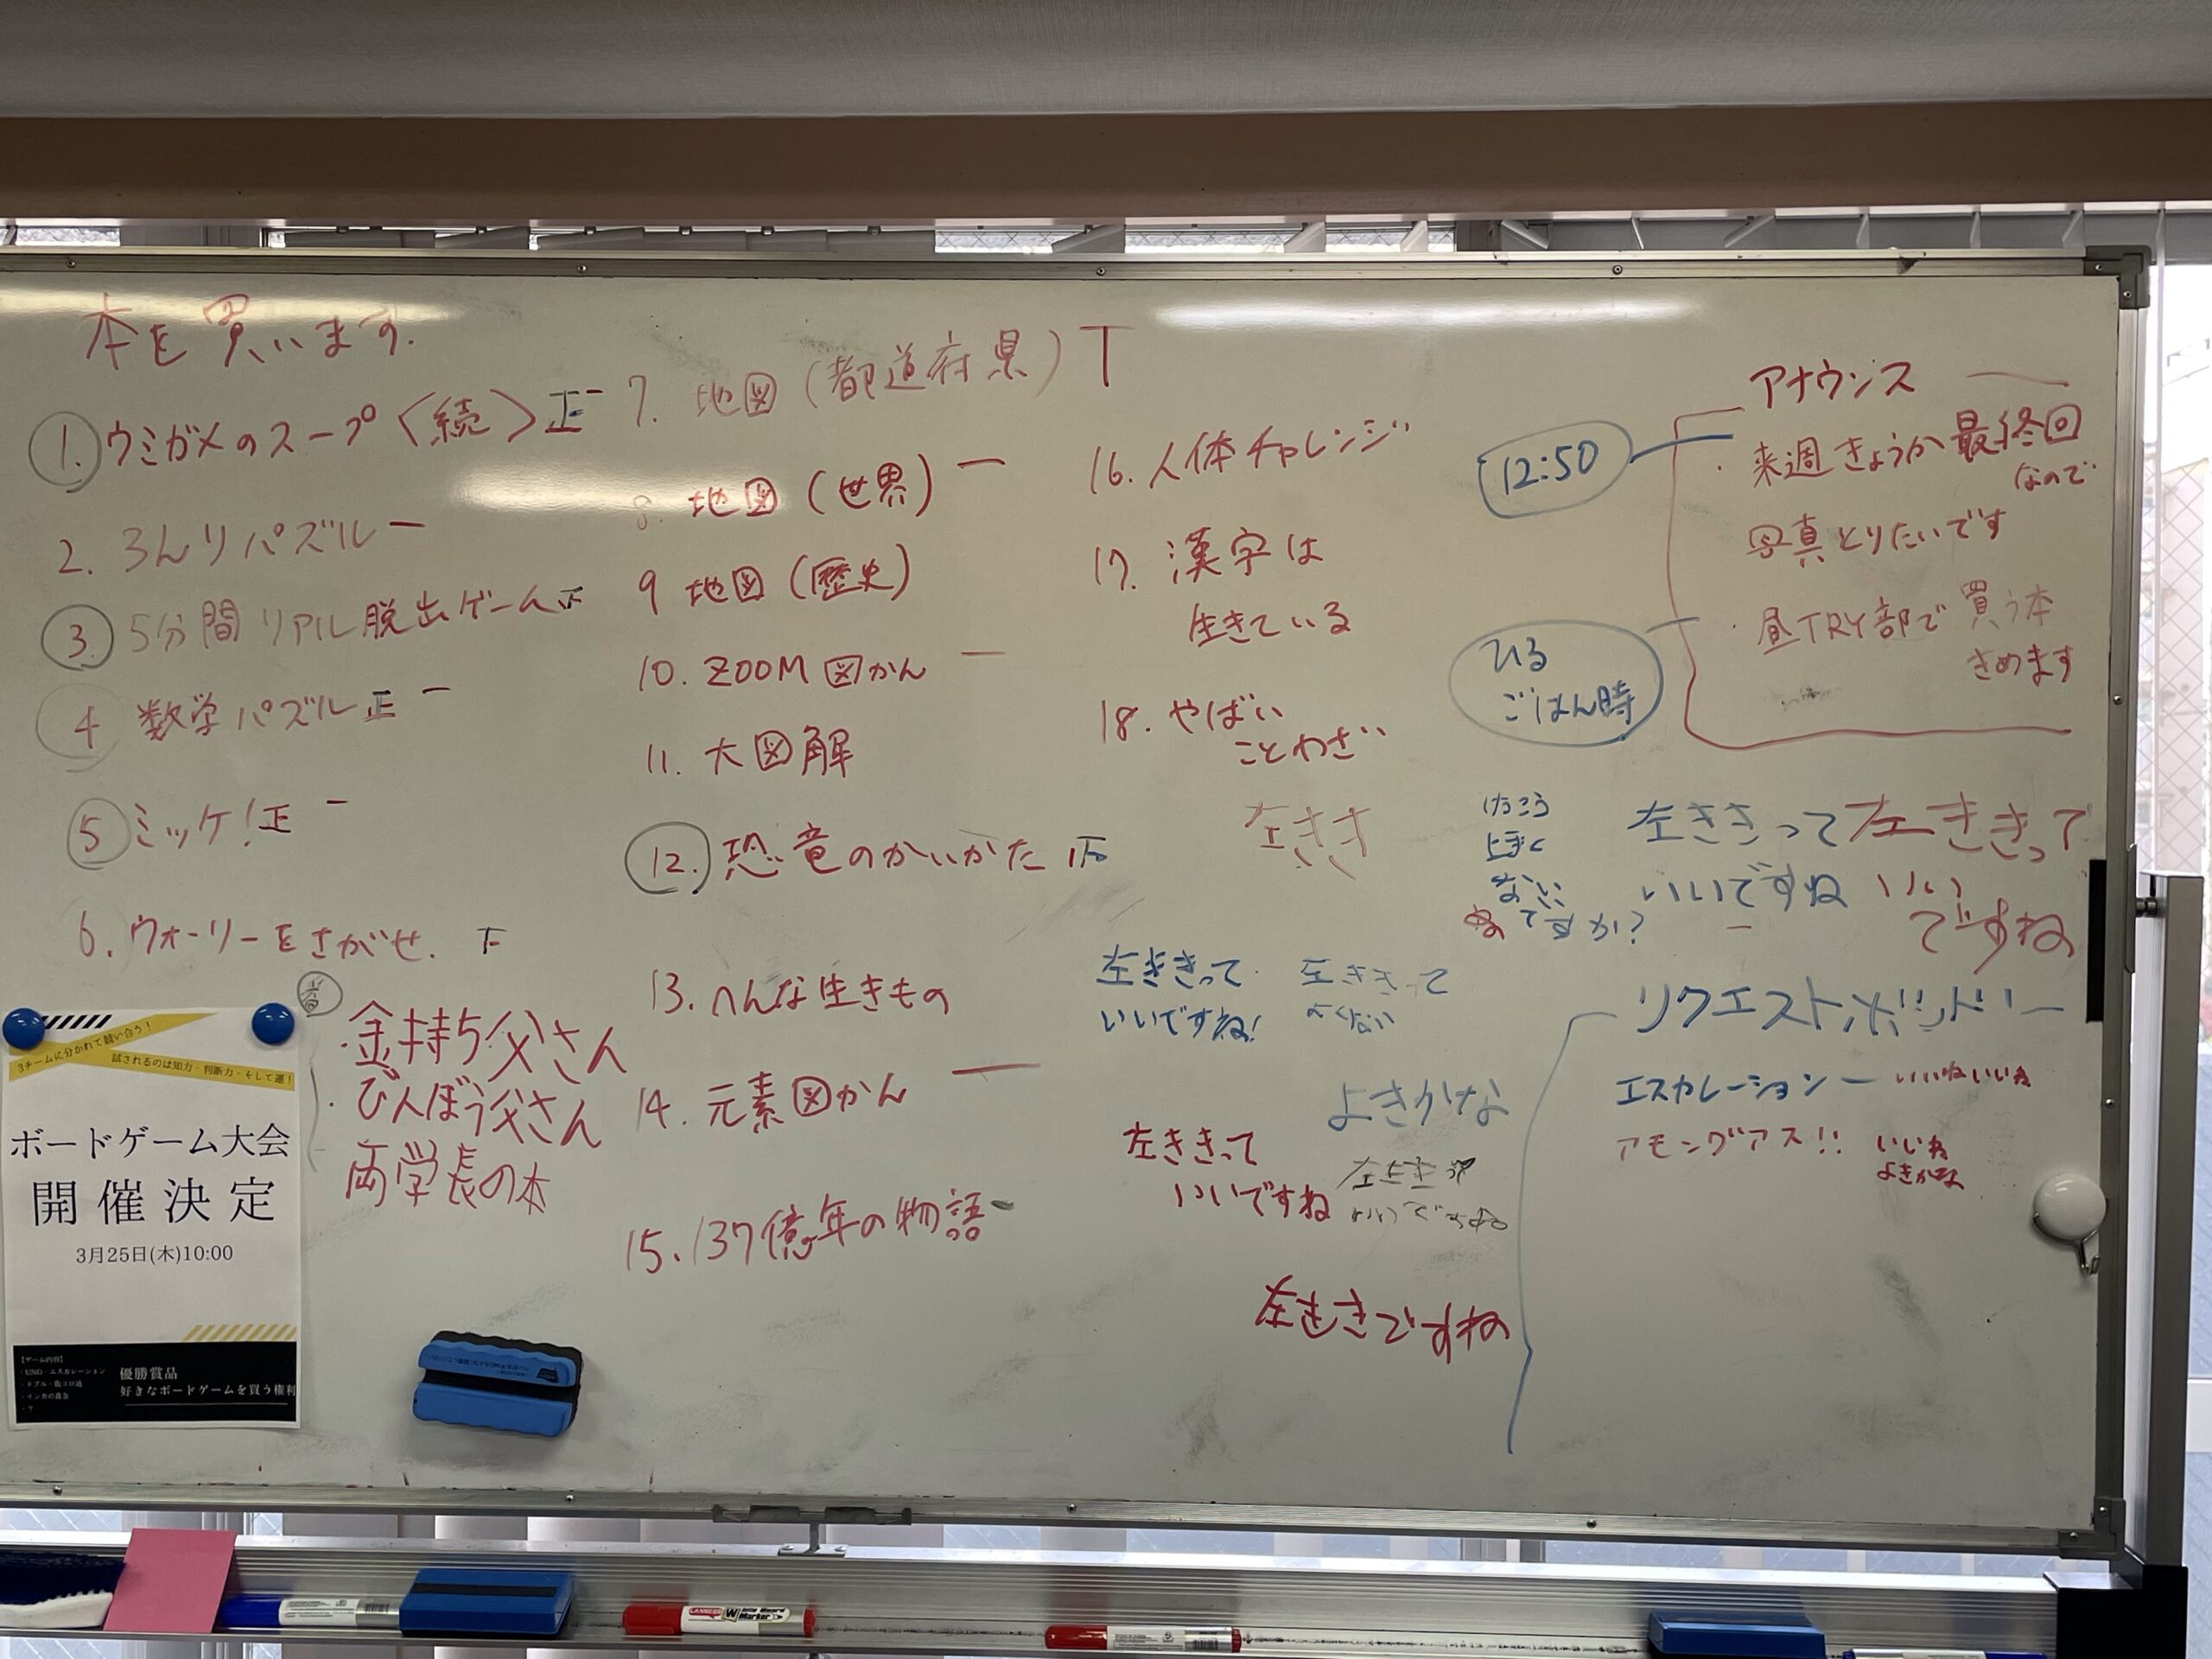 本を買います.
1. ウミガメのスープ〈続〉正一
2. 3んりパズル 一
3. 5分間リアル脱出ゲーム
4 数学パズル 正 一
5 ミッケ! 正 一
6. ウォーリーをさがせ. 下
・金持ち父さん
・びんぼう父さん
両学長の本
7. 地図(都道府県) T
8. 地図(世界) 一
9 地図(歴史)
10. ZOOM 図かん 一
11. 大図解
12. 恐竜のかいかた
13. へんな生きもの
14. 元素図かん 一
15. 137億年の物語 -
16. 人体チャレンジ
17. 漢字は
生きている
18. やばい
ことわざ
左きき
左ききって
いいですね!
左ききって
よくない
よきかな
左ききって
いいですね
左ききですね
12:50
ひる
ごはん時
アナウンス
・来週きょうか最終回
なので
写真とりたいです
・昼TRY部で買う本
きめます
ない
ですか?
左ききって
いいですね
左ききって
いい
ですね
リクエスト
エスカレーション ー いいねいいね
アモングアス!! いいね
よきかな
3チームに分かれて競い合う!
試されるのは知力・判断力・そして運!
ボードゲーム大会
開催決定
3月25日(木)10:00
【ゲーム内容】
・UNO・エスカレーション
・インカの黄金
・?
優勝賞品
好きなボードゲームを買う権利